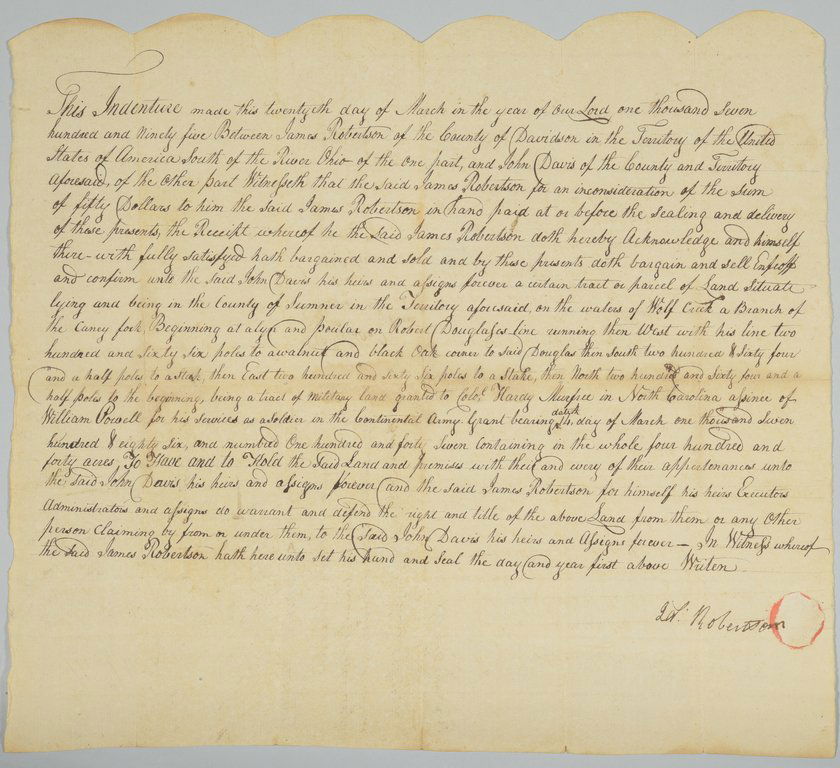 This Indenture made this twentyeth day of March in the year of our Lord one thousand Seven
hundred and Ninety five Between James Robertson of the County of Davidson in the Territory of the United
States of America South of the River Ohio of the one part, and John Davis of the County and Territory
aforesaid, of the other part Witnesseth that the Said James Robertson for an inconsideration of the Sum
of fifty Dollars to him the Said James Robertson in hand paid at or before the Sealing and delivery
of these presents, the Receipt whereof he the Said James Robertson doth hereby Acknowledge and himself
there-with fully satisfyed hath bargained and sold and by these presents doth bargain and sell Enfeoff
and confirm unto the Said John Davis his heirs and assigns forever a certain trait or parcel of Land Situate
lying and being in the County of Sumner in the Territory aforesaid, on the waters of Wolf Creek a Branch of
the Caney fork, Beginning at and poular on Robert Douglases line running then West with his line two
hundred and Sixty Six poles to a walnut and black Oak corner to said Douglas then South two hundred & Sixty four
and a half poles to a Stake, then East two hundred and sixty Six poles to a Stake, then North two hundred and Sixty four and a
half poles to the beginning, being a tract of military land granted to Colo. Hardy Murfree in North Carolina assinee of
William Powell for his Services as a Soldier in the Continental Army. Grant bearing date the 14 day of March one thousand Seven
hundred & eighty Six, and numbred One hundred and forty Seven containing in the whole four hundred and
forty acres, To Have and to Hold the Said Land and premises with their and every of their appertonances unto
the Said John Davis his heirs and assigns forever and the said James Robertson for himself his heirs Executors
Administrators and assigns do warrant and defend the right and title of the above Land from them or any Other
person Claiming by from or under them, to the Said John Davis his heirs and Assigns forever — In Witness whereof
the Said James Robertson hath here unto Set his hand and Seal the day and year first above Writen
Jas. Robertson